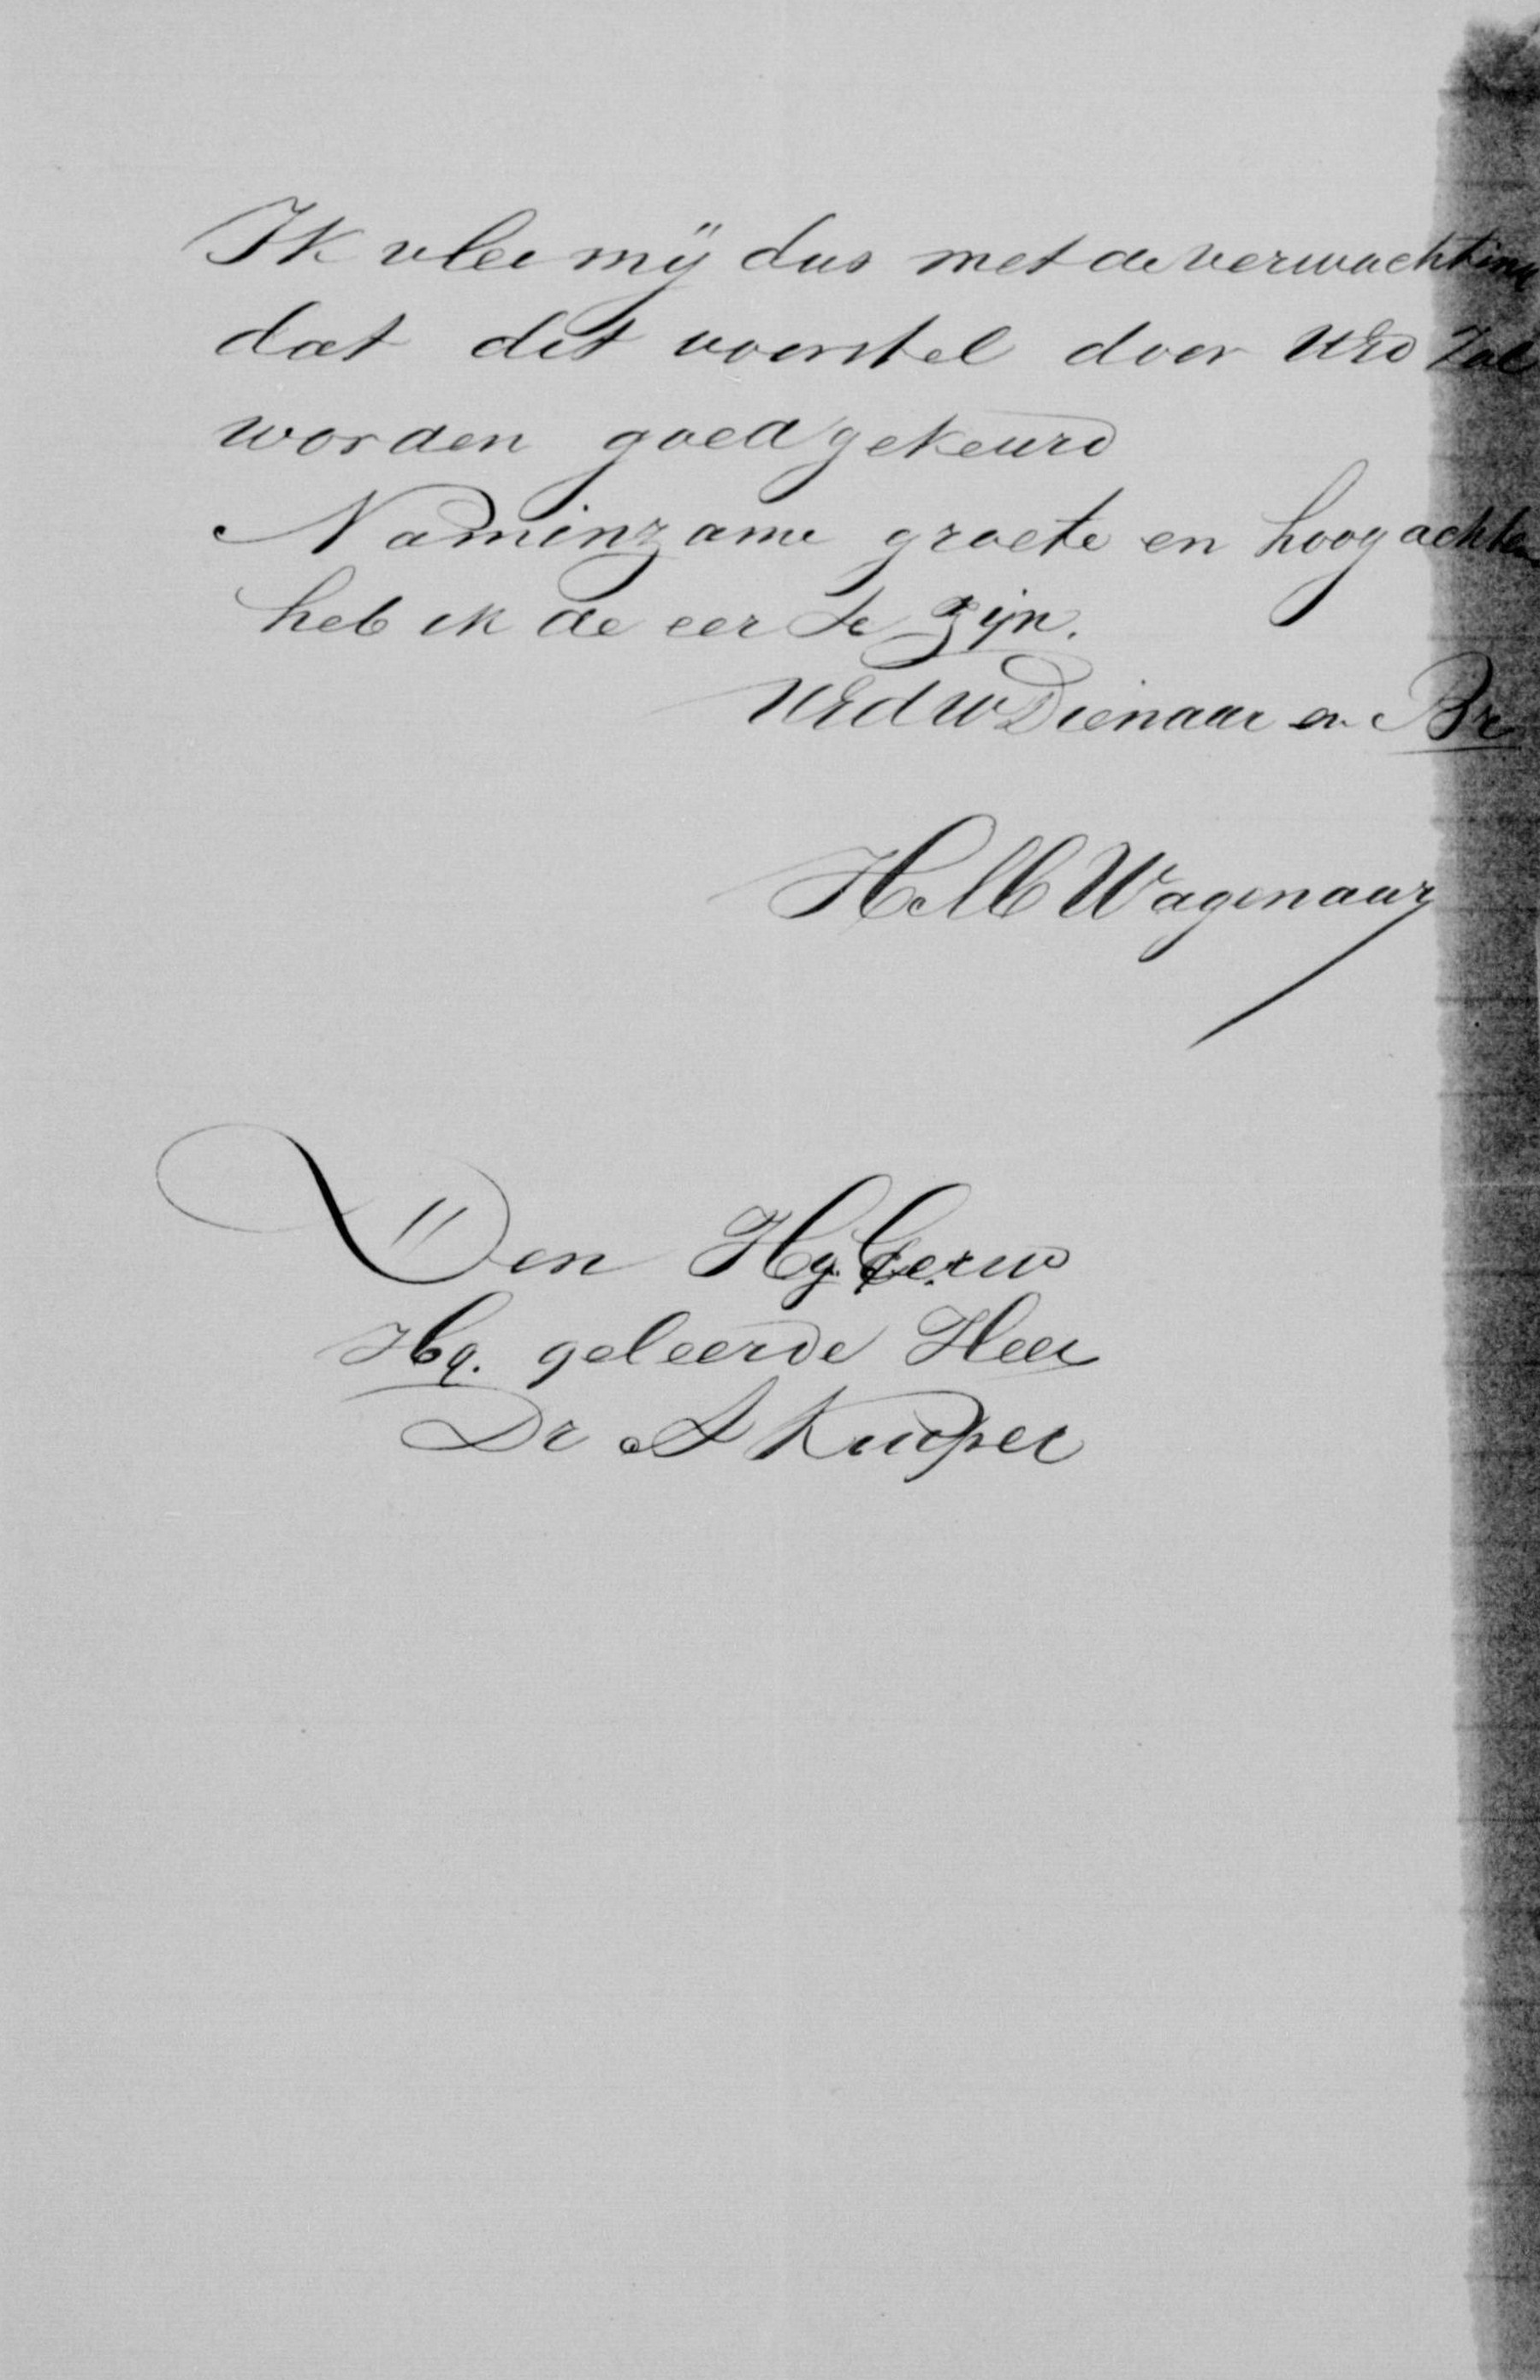 Ik vlei mij dus met de verwachting
dat dit voorstel door UEd zal
worden goedgekeurd
Na minzame groete en hoogachten
heb ik de eer te zijn.
UEdw Dienaar en Br
H M Wagenaar
Den Hg. Eerw
Hg. geleerde Heer
Dr A Kuyper